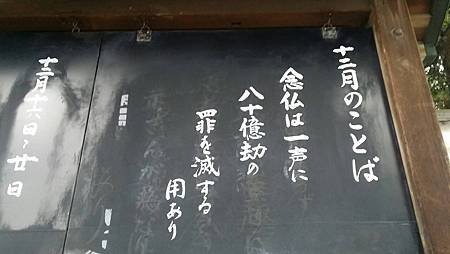 十二月のことば
念仏は一声に
八十億劫の
罪を滅する
用あり
十二月十六日〜廿日